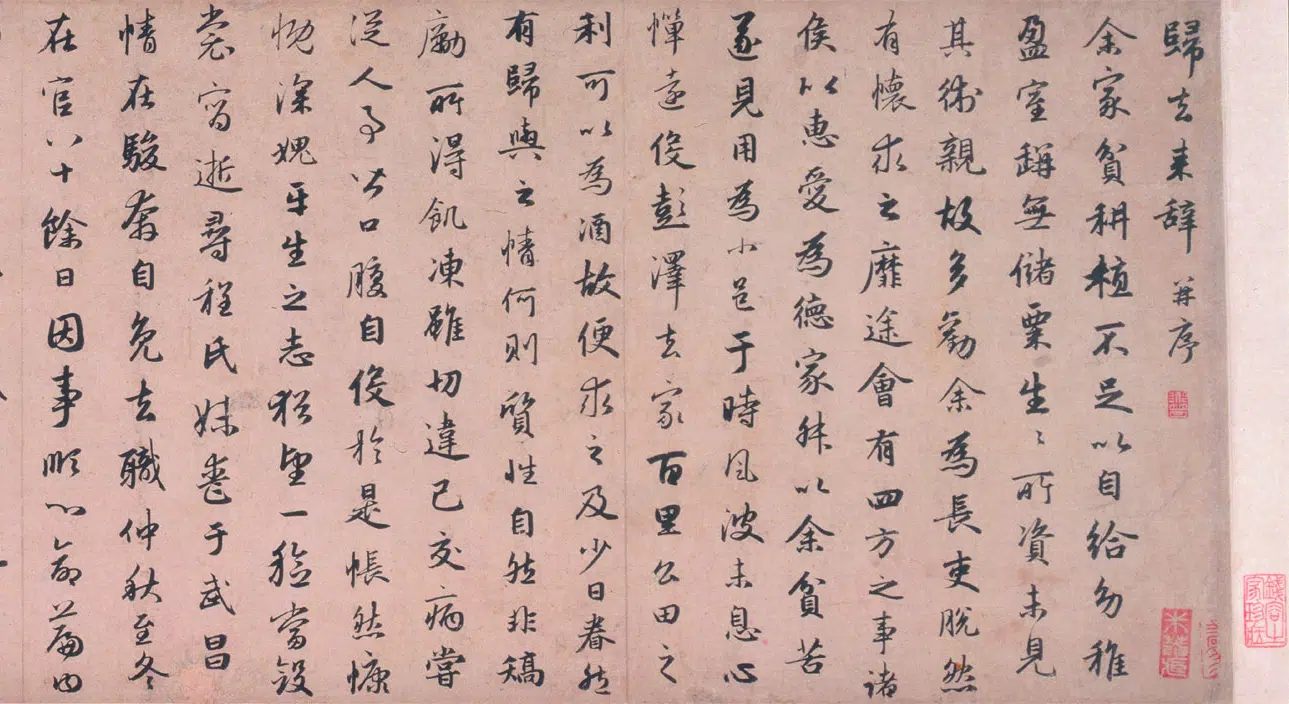 歸去来辞 并序
余家貧耕植不足以自給幼稚
盈室缾無儲粟生〻所資未見
其術親故多勸余為長吏脫然
有懷求之靡途會有四方之事諸
侯以惠愛為德家叔以余貧苦
遂見用為小邑于時風波未息心
憚遠役彭澤去家百里公田之
利可以為酒故便求之及少日眷然
有歸與之情何則質性自然非矯
勵所得飢凍雖切違己交病嘗
從人事皆口腹自役於是悵然慷
慨深媿平生之志猶望一稔當斂
裳宵逝尋程氏妹喪于武昌
情在駿奔自免去職仲秋至冬
在官八十餘日因事順心命篇曰